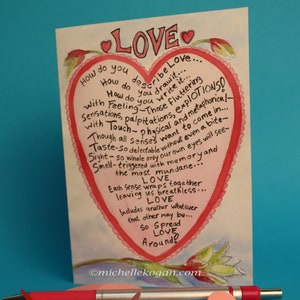 LOVE
How do you describe LOVE...
How do you draw it...
How do you write it...
with Feeling-Those Fluttering
sensations, palpitations, explOTIONS?
with Touch-physical and metaphorical-
Though all senses want to come in...
Taste-so delectable without even a bite-
Sight-so whole only our own eyes will see-
Smell-triggered with memory and
the most mundane...
LOVE
Each sense wraps together
leaving us breathless...
LOVE
Includes another whatever
that other may be...
So Spread
LOVE
Around!
©michellekogan.com